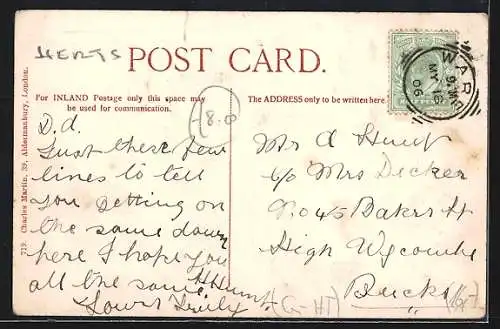 HERTS
POST CARD.
For INLAND Postage only this space may
be used for communication.
The ADDRESS only to be written here.
719. Charles Martin, 39, Aldermanbury, London.
WAR
MY 16
06
HALFPENNY
18.0
D.d.
Just these few
lines to tell
you getting on
the same down
here I hope you
all the same
H Hunt
Yours Truly
Mr A Hunt
c/o Mrs Decker
No 45 Bakers St
High Wycombe
Bucks
(G-HT)